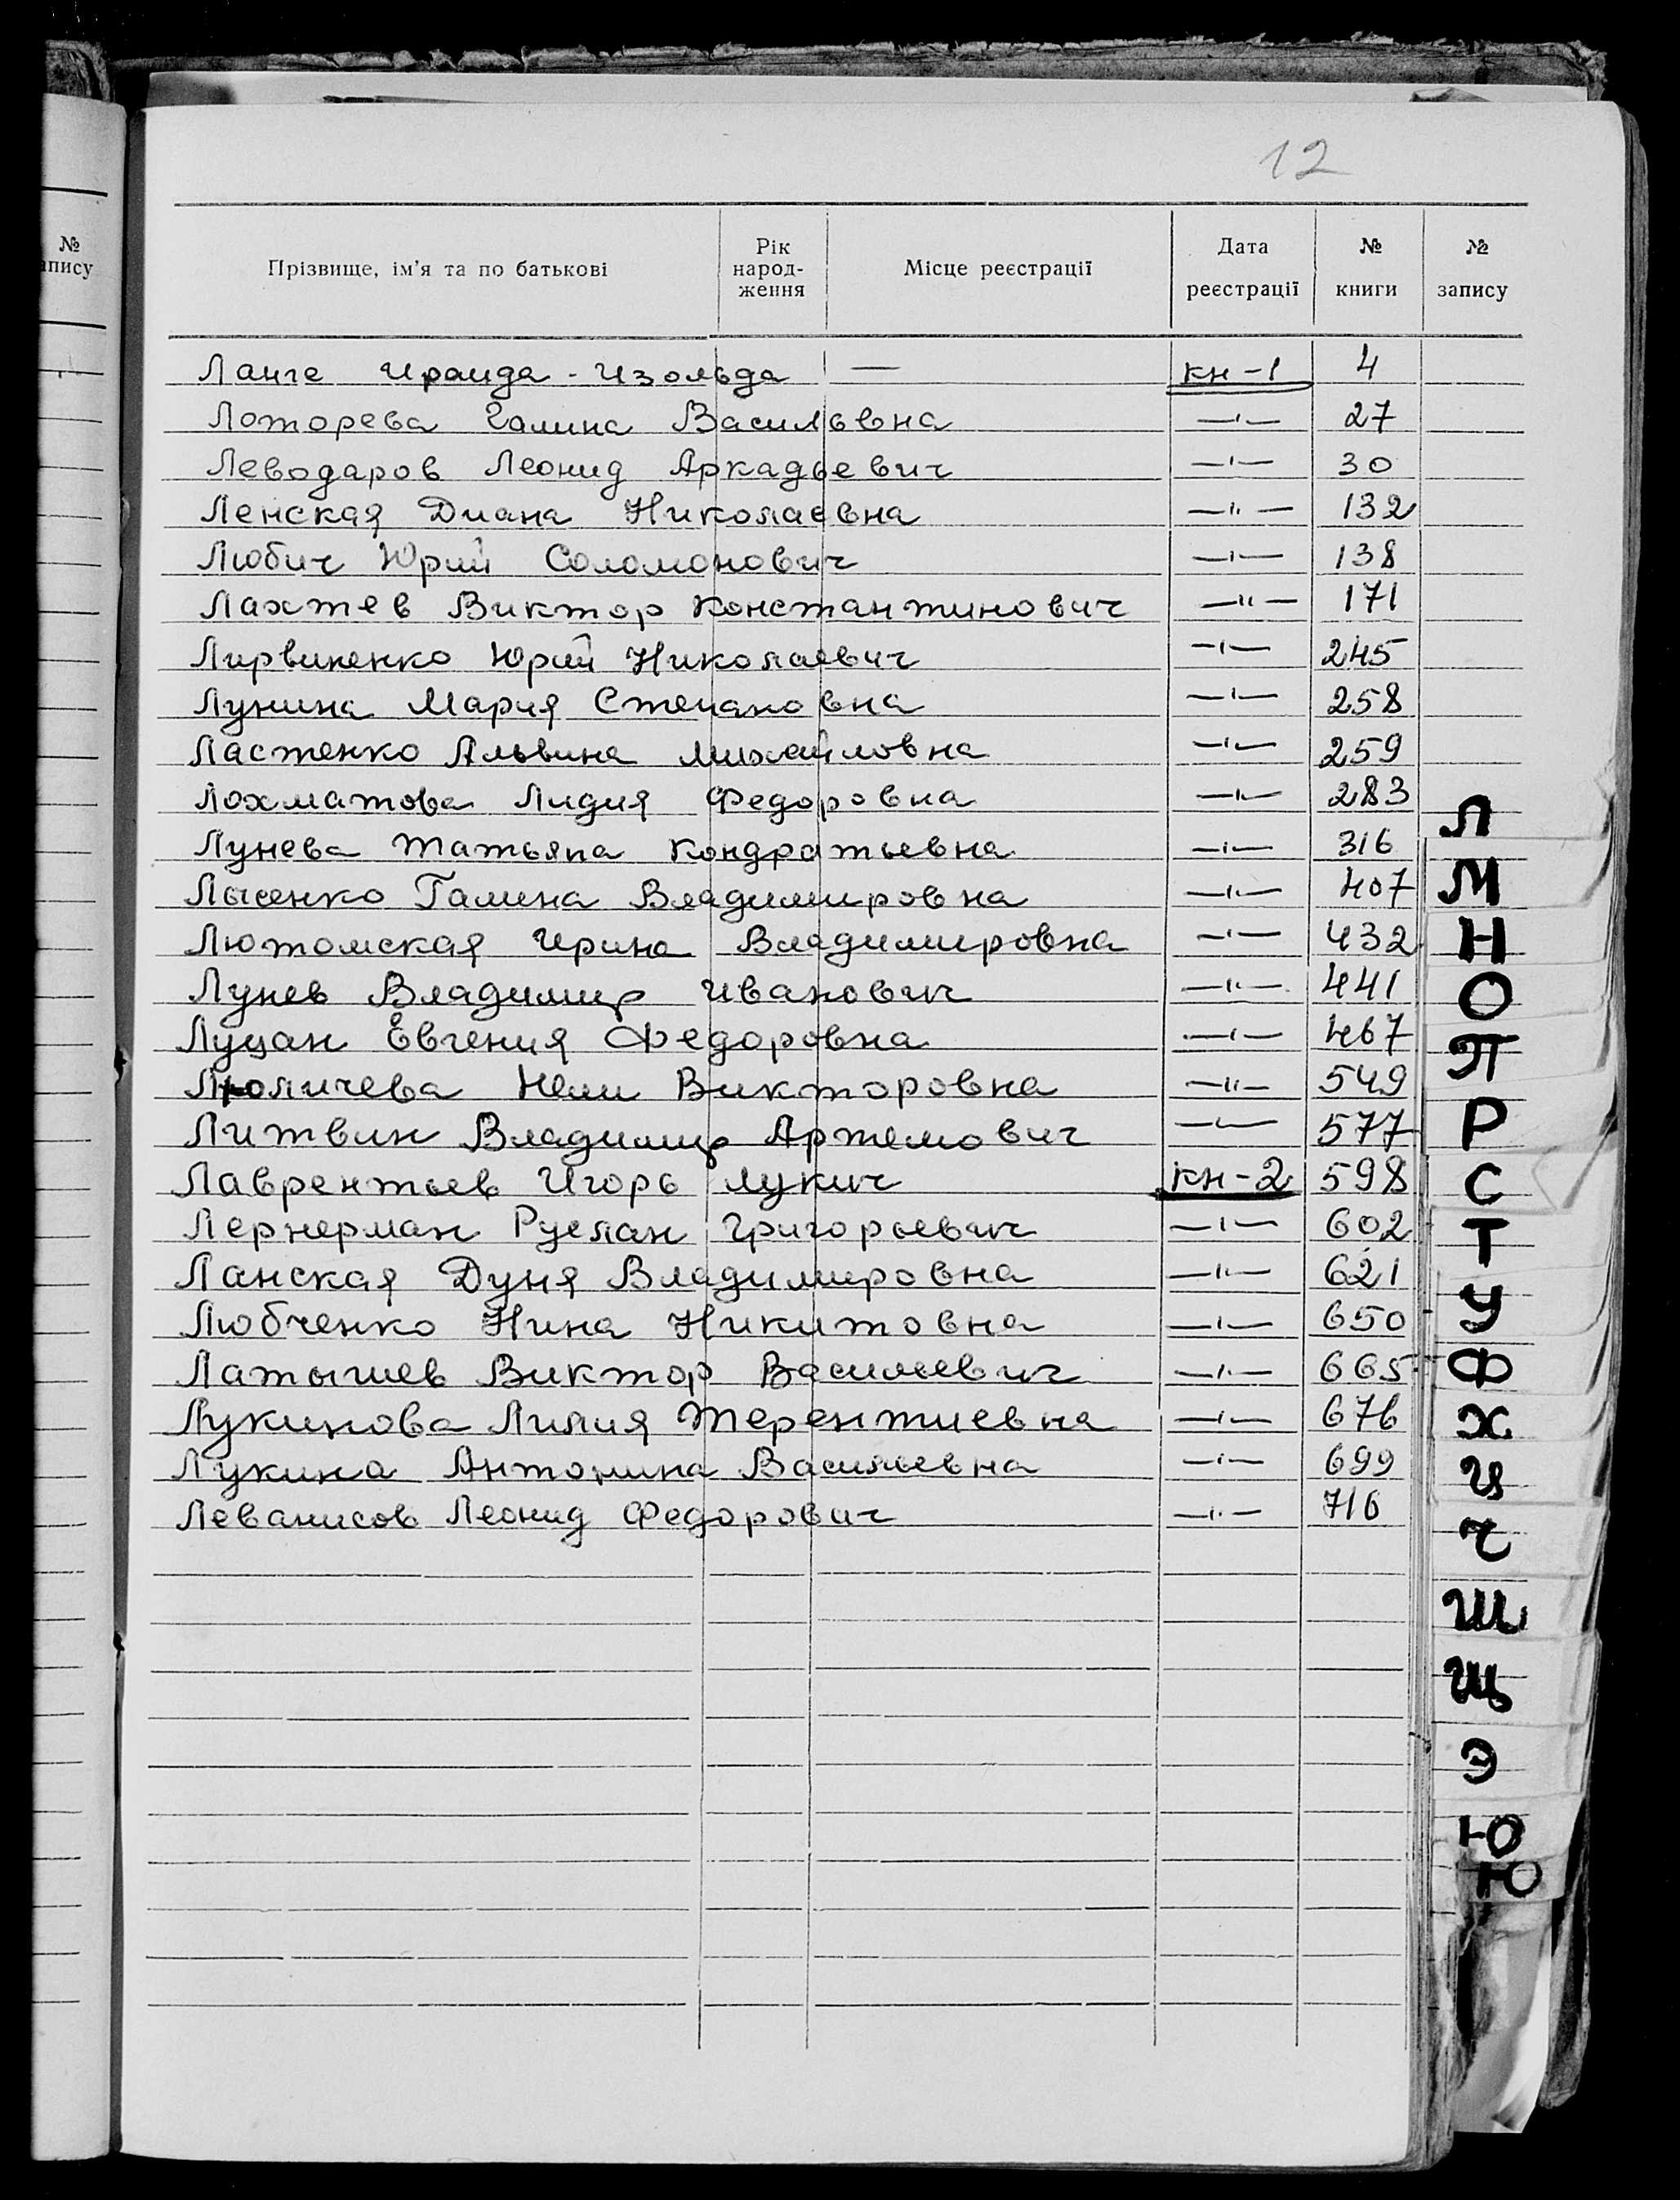 12
№
апису
Прізвище, ім'я та по батькові
Рік
народ-
ження
Місце реєстрації
Дата
реєстрації
№
книги
№
запису
Ланге Ираида-Изольда — кн-1 4
Лоторева Галина Васильевна —"— 27
Леводаров Леонид Аркадьевич —"— 30
Ленская Диана Николаевна —"— 132
Любич Юрий Соломонович —"— 138
Лахтев Виктор Константинович —"— 171
Юрий Николаевич —"— 245
Лунина Мария Степановна —"— 258
Ластенко Альвина Михайловна —"— 259
Лохматова Лидия Федоровна —"— 283
Лунева Татьяна Кондратьевна —"— 316
Лысенко Галина Владимировна —"— 407
Лютомская Ирина Владимировна —"— 432
Лунев Владимир Иванович —"— 441
Луцан Евгения Федоровна —"— 467
Викторовна —"— 549
Литвин Владимир Артемович —"— 577
Лаврентьев Игорь Лукич кн-2 598
Лернерман Руслан Григорьевич —"— 602
Ланская Дуня Владимировна —"— 621
Любченко Нина Никитовна —"— 650
Латышев Виктор Васильевич —"— 665
Лукинова Лилия Терентиевна —"— 676
Лукина Антонина Васильевна —"— 699
Леванисов Леонид Федорович —"— 716
Л
М
Н
О
П
Р
С
Т
У
Ф
Х
Ц
Ч
Ш
Щ
Э
Ю
Ю